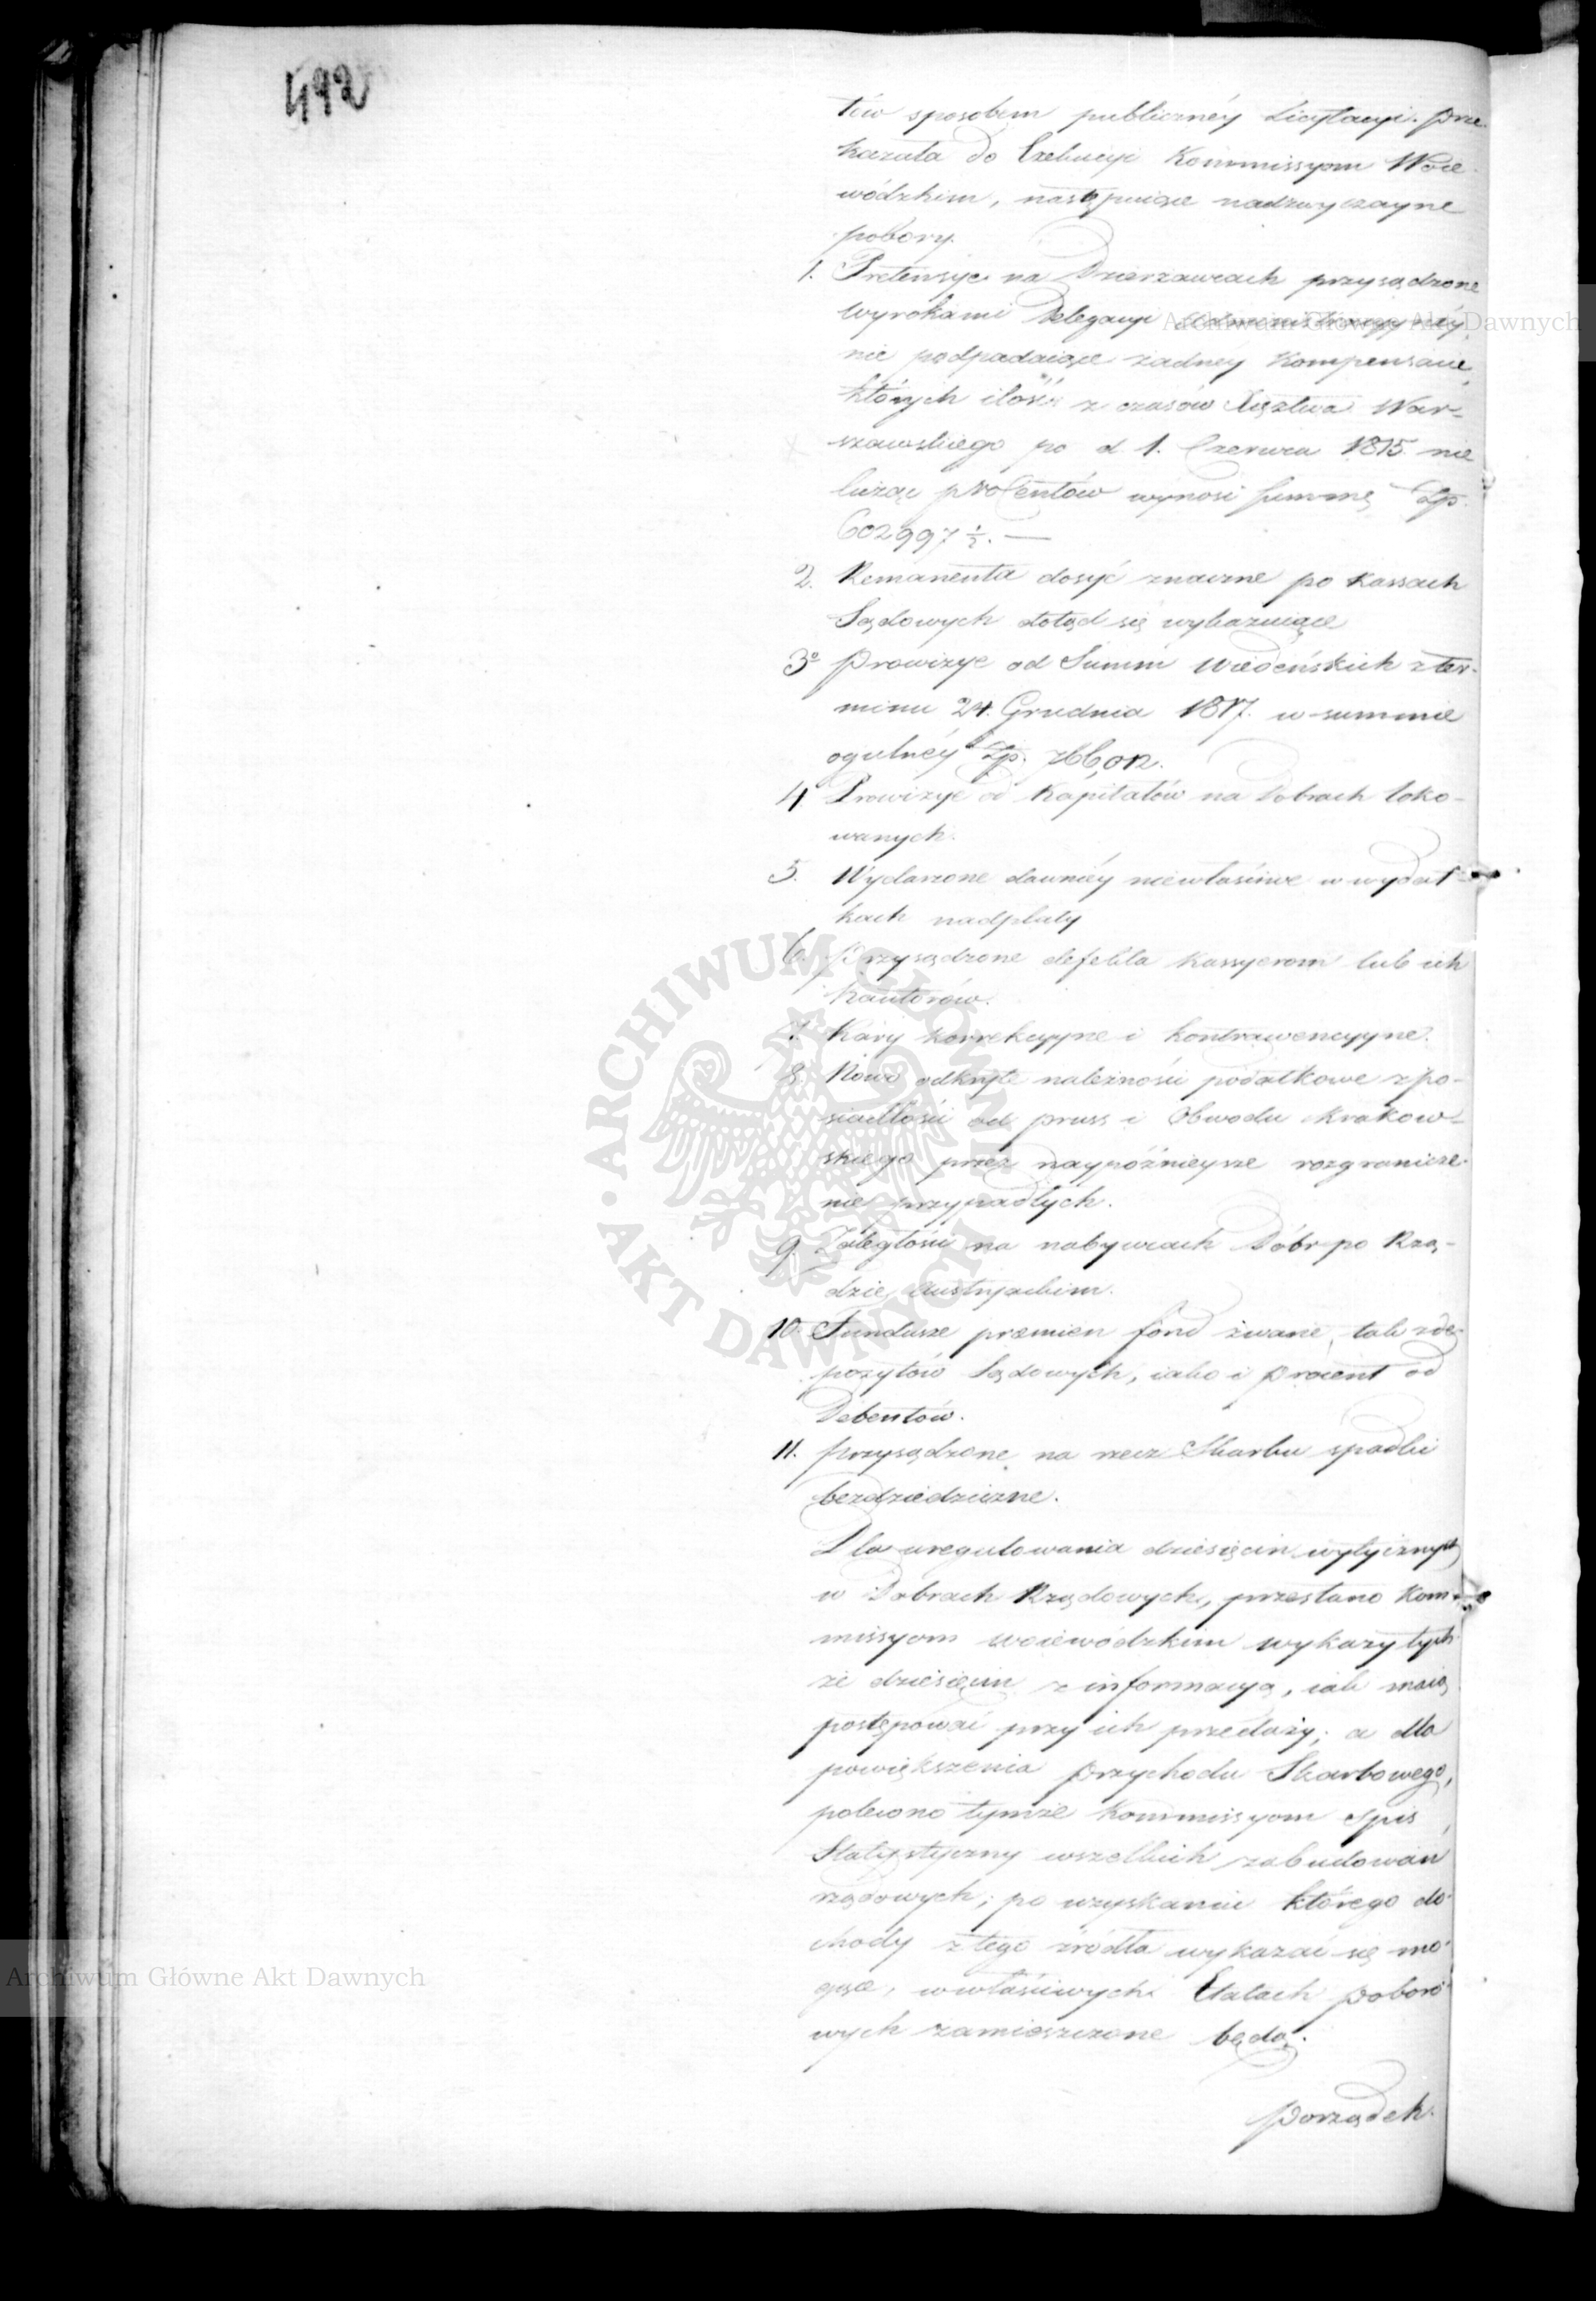 492
tów sposobem publicznéy Licytacyi. prze-
kazała do Exekucyi Kommissyom Woie-
wódzkim, następuiące nadzwyczayne
pobory.
1. Pretensye na Dzierzawcach przysądzone
wyrokami Delegacyi Administracyynéy,
nie podpadaiące żadnéy Kompensacie,
których ilość z czasów Xięztwa War-
szawskiego po d 1. Czerwca 1815 nie
licząc proCentów wynosi summę Zp.
602997 ½. —
2. Remanenta dosyć znaczne po Kassach
Sądowych dotąd się wykazuiące
3º Prowizye od Summ Wiedeńskich z ter-
minu 24. Grudnia 1817. w summie
ogulnéy Zp. 766,012.
4 Prowizye od Kapitałów na Dobrach loko-
wanych.
5. Wydarzone dawniéy niewłaściwe w wydat-
kach nadpłaty
6. Przysądzone defekta Kassyerom lub ich
Kautorów.
7. Kary korrekcyyne i kontrawencyyne.
8. Nowo odkryte należności podatkowe z po-
siadłości od pruss i Obwodu Krakow-
skiego przez naypóźnieysze rozgranicze-
nie przypadłych.
9. Zaległości na nabywcach Dóbr po Rzą-
dzie Austryackim.
10. Fundusze præmien fond zwane, tak z de-
pozytów Sądowych, iako i procent od
Debentów.
11. Przysądzone na rzecz Skarbu spadki
bezdziedziczne.
Dla uregulowania dziesięcin wytycznych
w Dobrach Rządowych, przesłano Kom-
missyom woiewódzkim wykazy tych-
że dziesięcin z informacyą, iak maią
postępować przy ich przedaży; a dla
powiększenia przychodu Skarbowego,
polecono tymże Kommissyom spis
Statystyczny wszelkich zabudowań
rządowych; po uzyskaniu którego do-
chody z tego źródła wykazać się mo-
gące, w właściwych Etatach poboro-
wych zamieszczone będą.
Porządek.
Archiwum Główne Akt Dawnych
Archiwum Główne Akt Dawnych
ARCHIWUM GŁÓWNE · AKT DAWNYCH ·